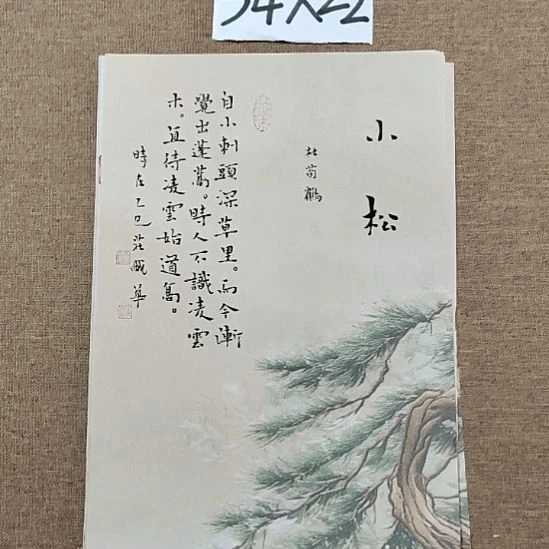 小松
杜荀鶴
自小刺頭深草里。而今漸
覺出蓬蒿。時人不識凌雲
木。直待凌雲始道高。
時在乙巳